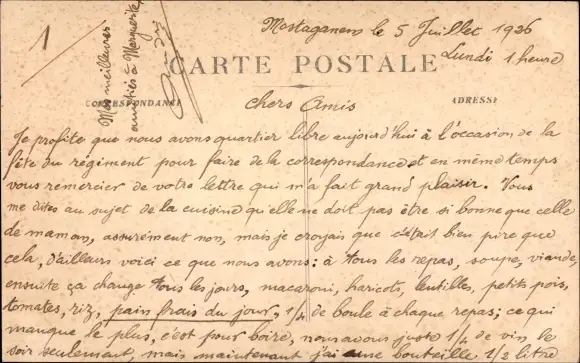 1
Mostaganem le 5 Juillet 1926
Lundi 1 heure
Mes meilleures
amitiés à Marguerite
CARTE POSTALE
CORRESPONDANCE
ADRESSE
chers Amis
Je profite que nous avons quartier libre aujourd'hui à l'occasion de la
fête du régiment pour faire de la correspondance et en même temps
vous remercier de votre lettre qui m'a fait grand plaisir. Vous
me dites au sujet de la cuisine qu'elle ne doit pas être si bonne que celle
de maman, assurément non, mais je croyais que c'était bien pire que
cela, d'ailleurs voici ce que nous avons : à tous les repas, soupe, viande,
ensuite ça change tous les jours, macaroni, haricots, lentilles, petits pois,
tomates, riz, pain frais du jour, 1/4 de boule à chaque repas ; ce qui
manque le plus, c'est pour boire, nous avons juste 1/4 de vin le
soir seulement, mais maintenant j'ai une bouteille 1/2 litre